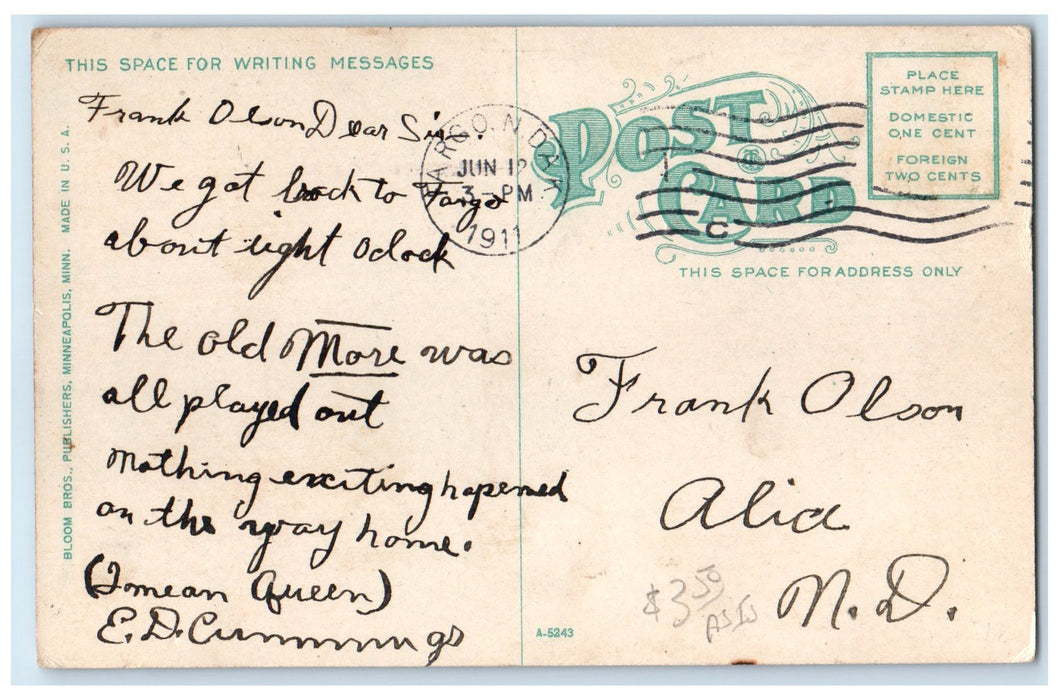 THIS SPACE FOR WRITING MESSAGES
Frank Olson Dear Sir:
We got back to Fargo
about eight Oclock
The old More was
all played out
nothing exciting hapened
on the way home.
(I mean Queen)
E. D. Cummings
BLOOM BROS., PUBLISHERS, MINNEAPOLIS, MINN. MADE IN U. S. A.
FARGO. N. DAK
JUN 12
3-PM
1911
POST
CARD
C
PLACE
STAMP HERE
DOMESTIC
ONE CENT
FOREIGN
TWO CENTS
THIS SPACE FOR ADDRESS ONLY
Frank Olson
Alice
N. D.
$3.50
AS IS
A-5243